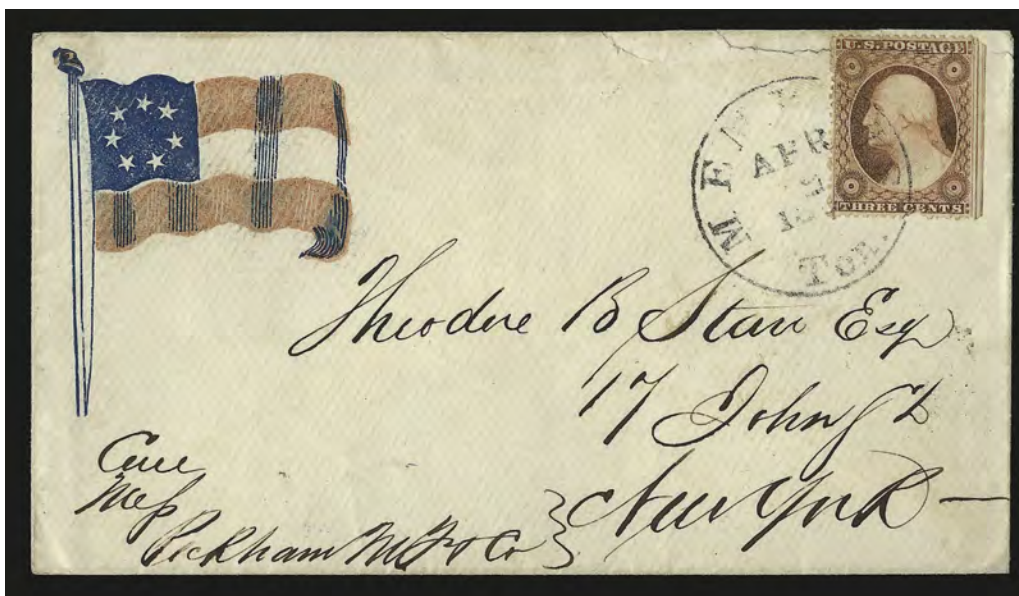 U.S. POSTAGE
THREE CENTS
APR
Ten.
Theodore B Starr Esq
17 John St
New York
Care
Mess
Peckham M & Co